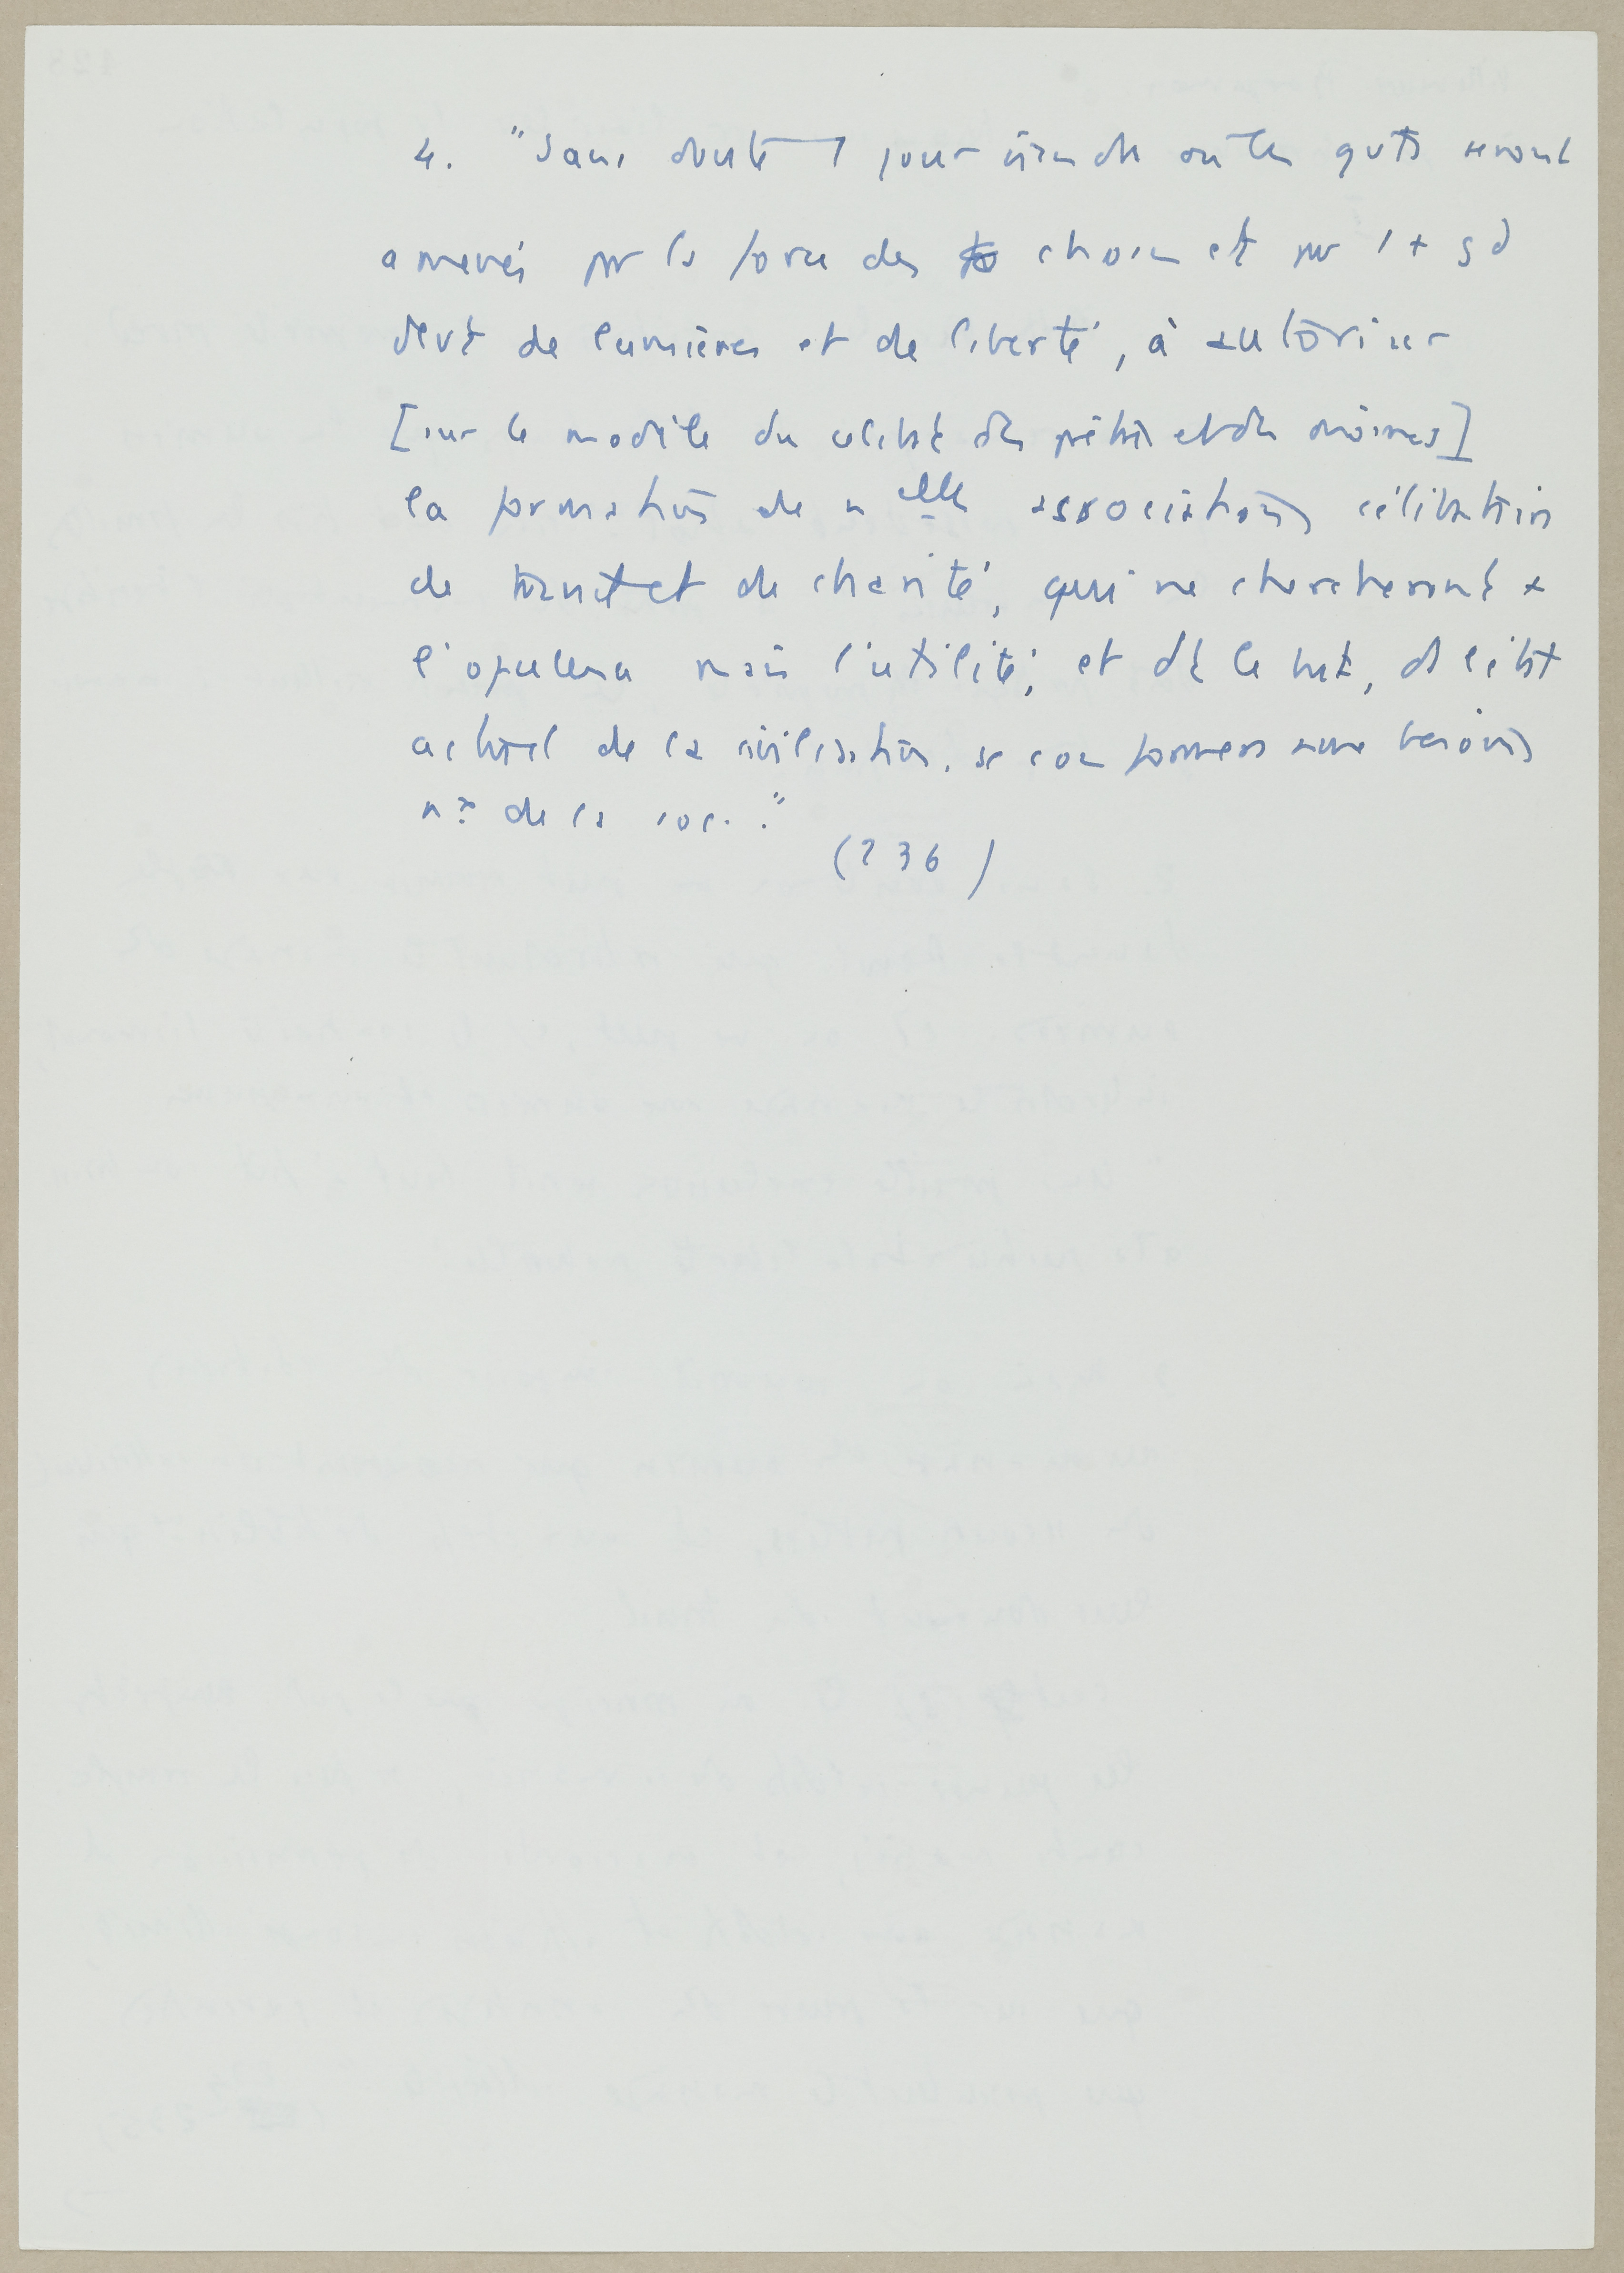 4. "Sans doute 1 jour viendra où les gvts seront
amenés pr la force des choses et pr 1 + gd
devt de lumières et de liberté, à autoriser
[sur le modèle du célibat des prêtres et des moines]
la formation de nelles associations célibataires
de travail et de charité, qui ne chercheront +
l'opulence mais l'utilité; et dt le but, ds l'état
actuel de la civilisation, se conformera aux besoins
de la soc."
(236)